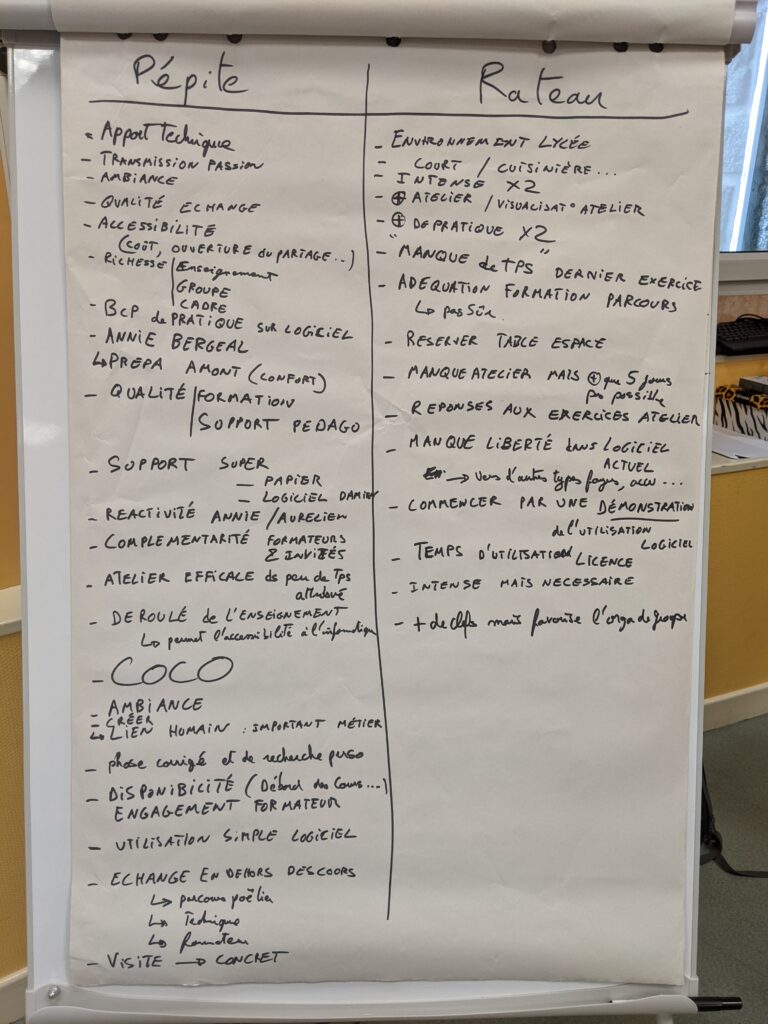 Pépite
- Apport Technique
- TRANSMISSION PASSION
- AMBIANCE
- QUALITÉ ECHANGE
- ACCESSIBILITÉ
(COÛT, OUVERTURE du PARTAGE...)
- RICHESSE | Enseignement
GROUPE
CADRE
- BCP de PRATIQUE SUR LOGICIEL
- ANNIE BERGEAL
↳ PREPA AMONT (CONFORT)
- QUALITÉ | FORMATION
SUPPORT PEDAGO
- SUPPORT SUPER
- PAPIER
- LOGICIEL DAMIEN
- REACTIVITÉ ANNIE / AURELIEN
- COMPLEMENTARITÉ FORMATEURS
& INVITÉS
- ATELIER EFFICALE ds peu de Tps
- DEROULÉ de L'ENSEIGNEMENT
↳ permet l'accessibilité à l'informatique
- COCO
- AMBIANCE
- CRÉER
↳ LIEN HUMAIN : IMPORTANT MÉTIER
- phase corrigé et de recherche perso
- DISPONIBILITÉ (Débord des Cours...)
ENGAGEMENT FORMATEUR
- UTILISATION SIMPLE LOGICIEL
- ECHANGE EN DEHORS DES COURS
↳ parcours poêlier
↳ Technique
↳
- VISITE → CONCRET
Rateau
- ENVIRONNEMENT LYCÉE
- COURT / CUISINIÈRE...
- INTENSE X2
- ⊕ ATELIER / VISUALISAT° ATELIER
- ⊕ DE PRATIQUE X2
- "MANQUE de TPS" DERNIER EXERCICE
- ADEQUATION FORMATION PARCOURS
↳ pas Sûr
- RESERVER TABLE ESPACE
- MANQUE ATELIER MAIS ⊕ que 5 jours
pas possible
- REPONSES AUX EXERCICES ATELIER
- MANQUE LIBERTÉ dans LOGICIEL
ACTUEL
→ vers d'autres types foyers, accu ...
- COMMENCER PAR UNE DÉMONSTRATION
de l'UTILISATION
LOGICIEL
- TEMPS D'UTILISATION LICENCE
- INTENSE MAIS NECESSAIRE
- + de mais favorise l'orga de groupe